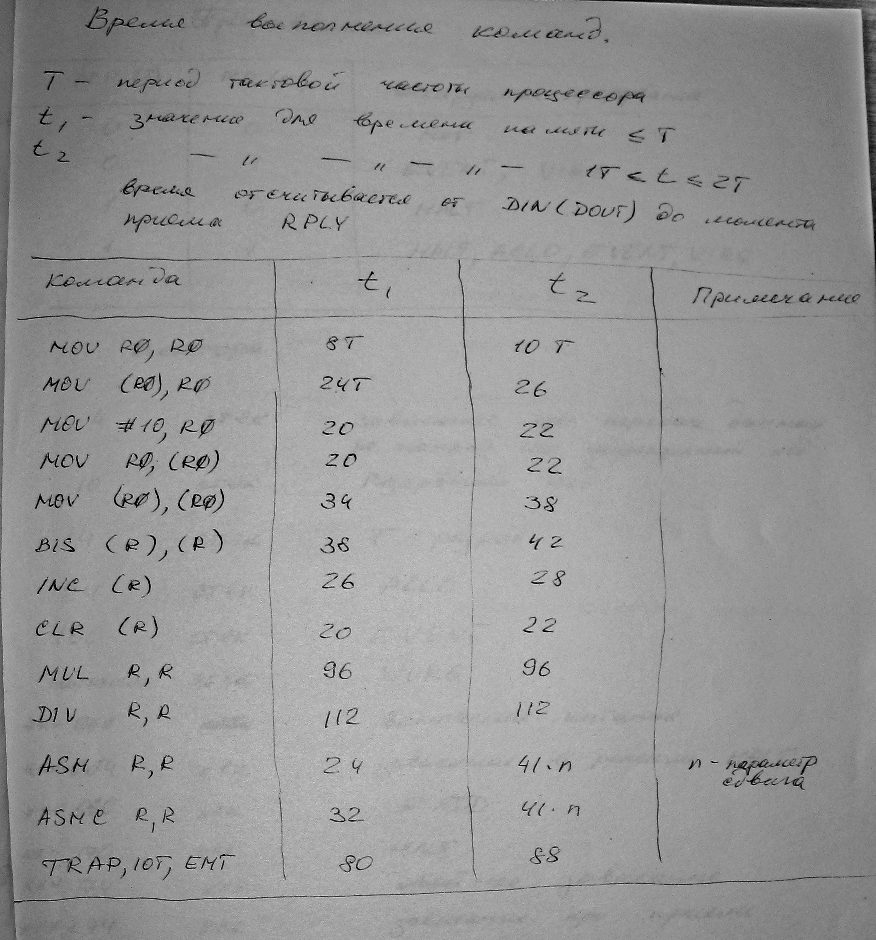 Время выполнения команд.
T – период тактовой частоты процессора
t₁ – значение для времени памяти ≤ T
t₂ — " — " — " — 1T < t ≤ 2T
время отсчитывается от DIN (DOUT) до момента
приема RPLY
Команда t₁ t₂ Примечание
MOV RØ, RØ 8T 10 T
MOV (RØ), RØ 24T 26
MOV #10, RØ 20 22
MOV RØ, (RØ) 20 22
MOV (RØ), (RØ) 34 38
BIS (R), (R) 38 42
INC (R) 26 28
CLR (R) 20 22
MUL R, R 96 96
DIV R, R 112 112
ASH R, R 24 41·n n – параметр
сдвига
ASHC R, R 32 41·n
TRAP, IOT, EMT 80 88